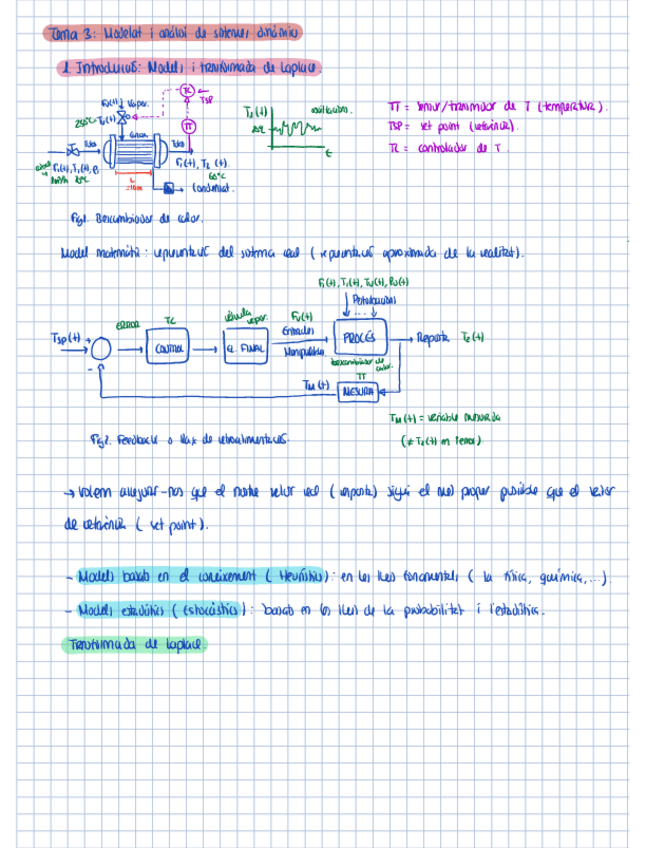 Tema 3: Modelat i anàlisi de sistemes dinàmics
1. Introducció: Models i transformada de Laplace.
Fv(t) Vapor.
TC
TSP
250ºC Tv(t)
TT
Tubs
Tubs
F1(t), T1(t), P1
F1(t), T2(t)
60ºC
L
Condensat.
T2(t)
oscil·lacions.
t
TT = sensor/transmissor de T (temperatura).
TSP = set point (referència).
TC = controlador de T
Fig1. Bescanviador de calor.
Model matemàtic: representació del sistema real (representació aproximada de la realitat).
F1(t), T1(t), Tv(t), Pv(t)
Pertorbacions
TSP(t)
+
-
ERROR
TC
CONTROL
vàlvula vapor.
E. FINAL
Fv(t)
Entrades
Manipulades
PROCÉS
Resposta T2(t)
bescanviador de calor.
TT
MESURA
TM(t)
TM(t) = variable mesurada
(≠ T2(t) en l'error)
Fig2. Feedback o llaç de retroalimentació.
→ Volem assegurar-nos que el nostre valor real (resposta) sigui el més proper possible que el valor
de referència (set point).
- Models basats en el coneixement (Heurístics): en les lleis fonamentals (la física, química,...).
- Models estadístics (estocàstics): basats en les lleis de la probabilitat i l'estadística.
Transformada de Laplace.